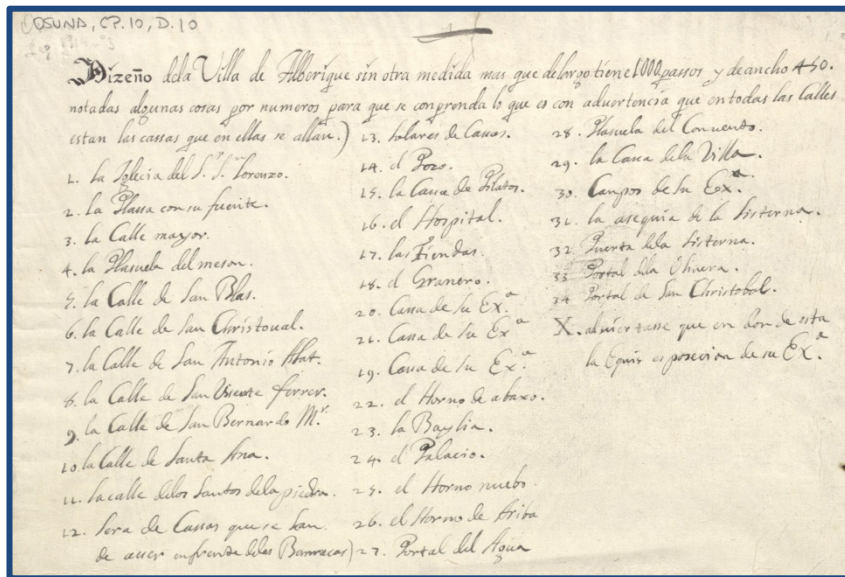 OSUNA, CP.10, D.10
Dizeño dela Villa de Alberique sin otra medida mas que delargo tiene 1000 passos y de ancho 450.
notadas algunas cosas por numeros para que se conprenda lo que es con aduertencia que en todas las Calles
estan las cassas que en ellas se allan.)
1. la Iglecia del S.r S.n Lorenzo.
2. la Plassa con su fuente.
3. la Calle mayor.
4. la Plasuela del meson.
5. la Calle de San Blas.
6. la Calle de San Christoual.
7. la Calle de San Antonio Abat.
8. la Calle de San Vicente ferrer.
9. la Calle de San Bernardo M.r
10. la Calle de Santa Ana.
11. la calle delos Santos dela piedra.
12. Sera de Cassas que se han
de acer enfrente delas Barracas)
13. Solares de Cassas.
14. el Pozo.
15. la Cassa de Pilatos.
16. el Hospital.
17. las Tiendas.
18. el Granero.
20. Cassa de Su Ex.a
21. Cassa de Su Ex.a
19. Cassa de Su Ex.a
22. el Horno de abaxo.
23. la Baylia.
24. el Palacio.
25. el Horno nuebo.
26. el Horno de Ariba
27. Portal del Agua
28. Plasuela del Conuento.
29. la Cassa dela Villa.
30. Campos de Su Ex.a
31. la asequia de la Sisterna.
32. Puerta dela Sisterna.
33 Portal dela Oliuera.
34 Portal de San Christobal.
X. aduiertasse que en don de esta
la Equis es posecion de su Ex.a